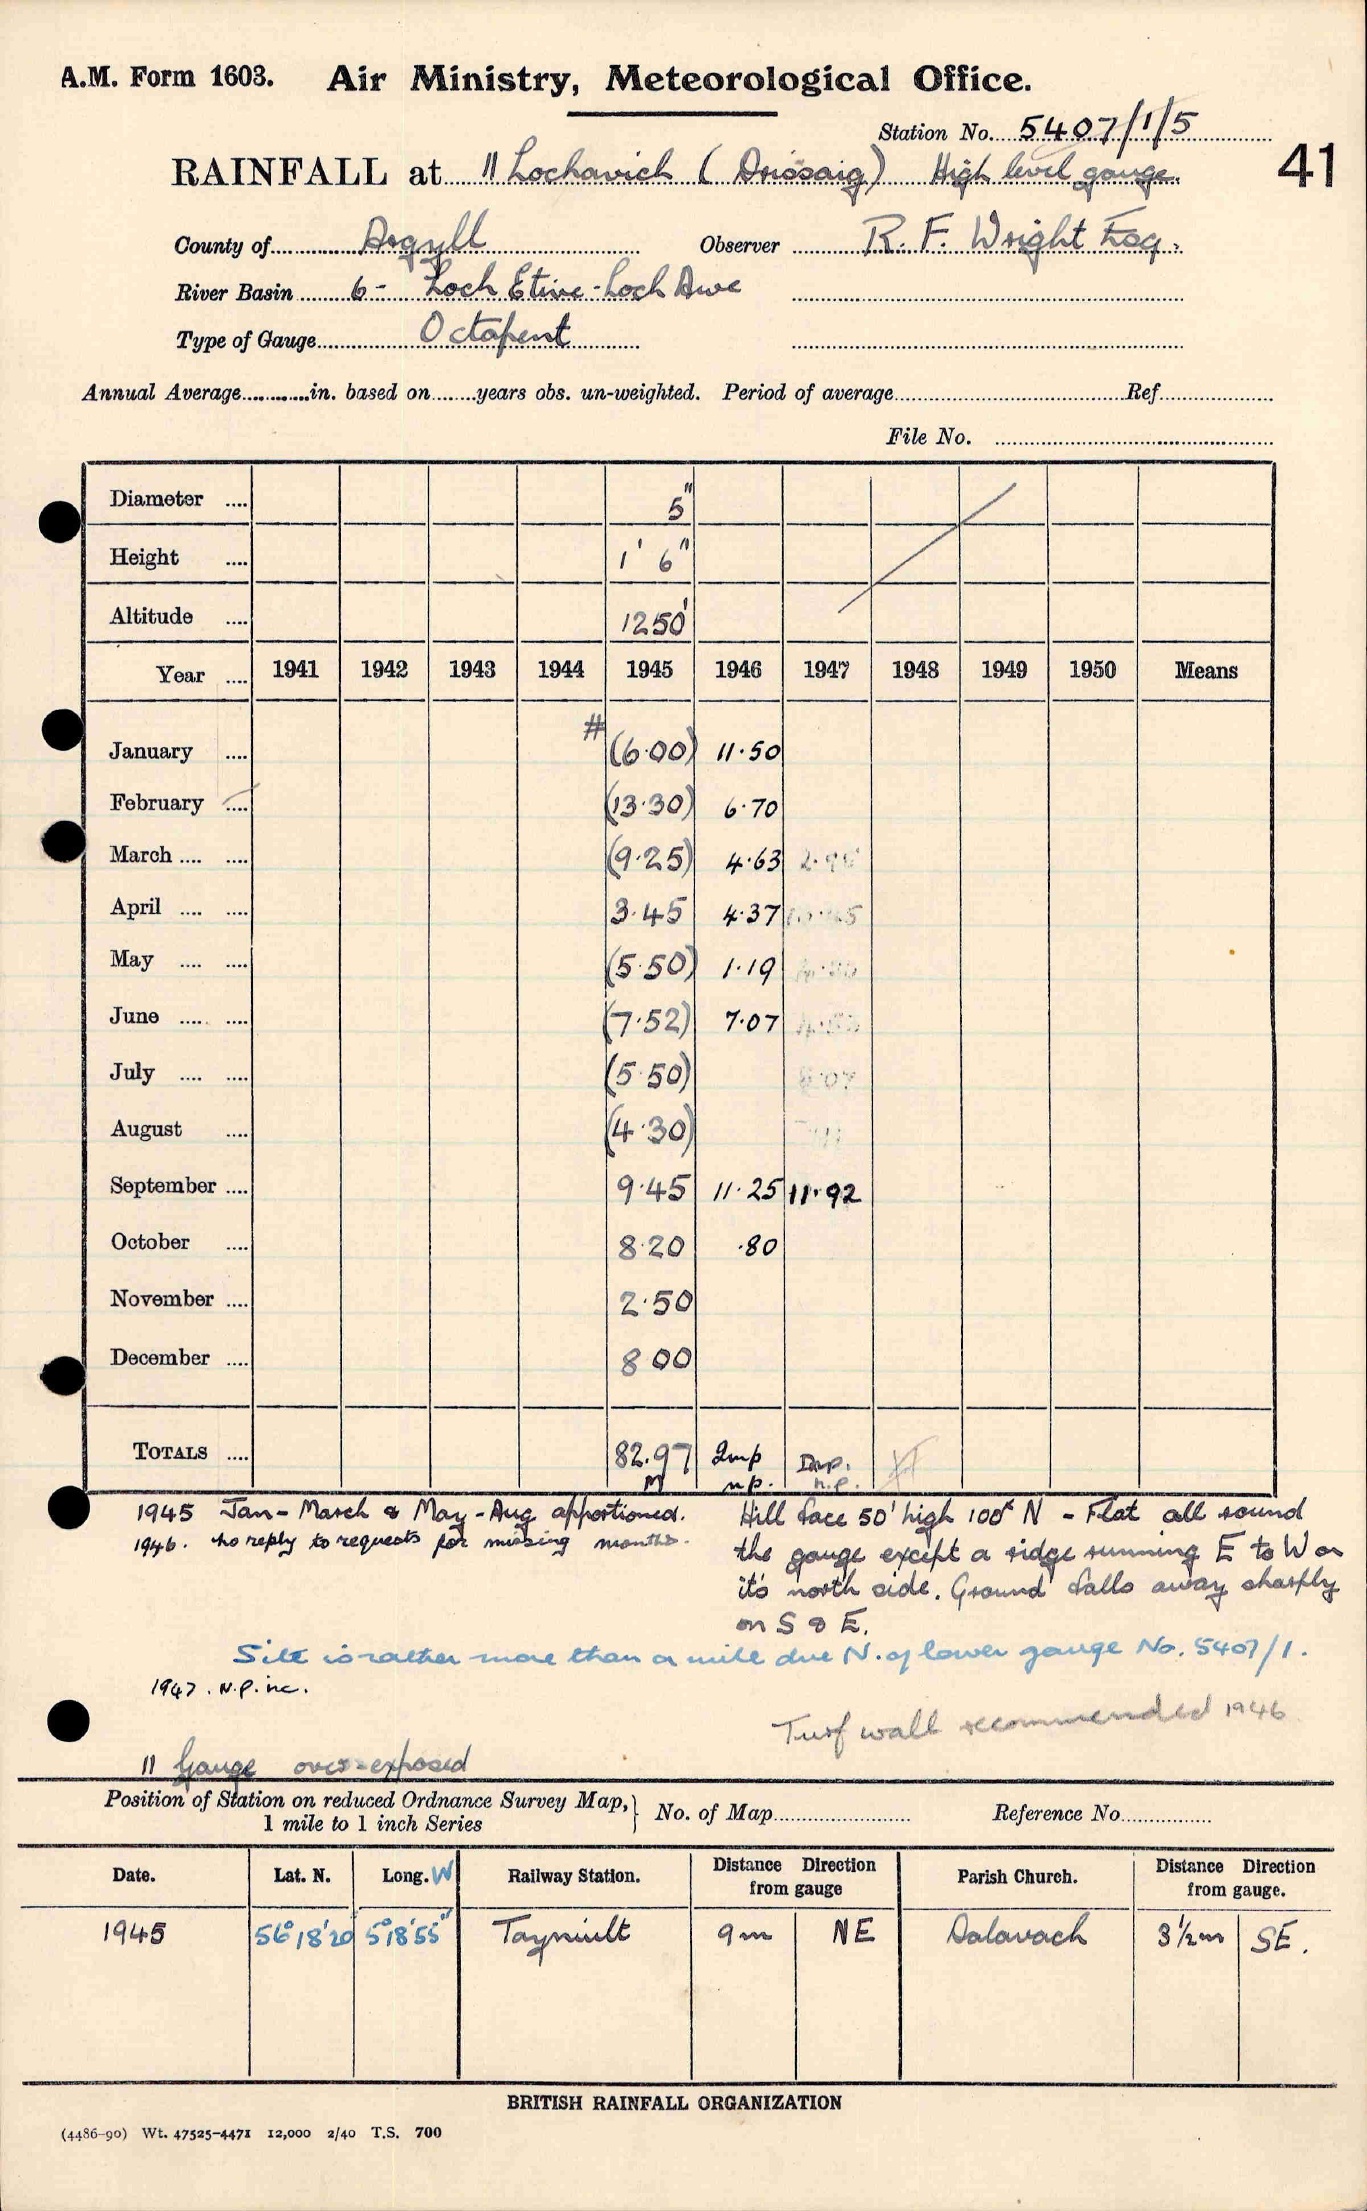 A.M. Form 1603. Air Ministry, Meteorological Office.
Station No. 5407/1/5
41
RAINFALL at " Lochavich (Drissaig) High level gauge.
County of Argyll Observer R. F. Wright Esq.
River Basin 6 - Loch Etive - Loch Awe
Type of Gauge Octapent
Annual Average ... in. based on ... years obs. un-weighted. Period of average ... Ref.
File No.
Diameter 5"
Height 1' 6"
Altitude 1250'
Year 1941 1942 1943 1944 1945 1946 1947 1948 1949 1950 Means
January # (6.00) 11.50
February (13.30) 6.70
March (9.25) 4.63
April 3.45 4.37
May (5.50) 1.19
June (7.52) 7.07
July (5.50) 8.07
August (4.30)
September 9.45 11.25 11.92
October 8.20 .80
November 2.50
December 8 00
TOTALS 82.97 Imp Imp.
M n.p. n.p.
1945 Jan - March & May - Aug apportioned.
1946. No reply to requests for missing months.
Hill face 50' high 100ft N - Flat all round
the gauge except a ridge running E to W on
it's north side. Ground falls away sharply
on S & E.
Site is rather more than a mile due N. of lower gauge No. 5407/1.
1947. N.P. inc.
Turf wall recommended 1946
" Gauge over-exposed
Position of Station on reduced Ordnance Survey Map, 1 mile to 1 inch Series } No. of Map Reference No.
Date. Lat. N. Long. W Railway Station. Distance Direction from gauge Parish Church. Distance Direction from gauge.
1945 56° 18' 20 5° 18' 55" Taynuilt 9m NE Dalavach 3 1/2 m SE.
BRITISH RAINFALL ORGANIZATION
(4486-90) Wt. 47525-4471 12,000 2/40 T.S. 700